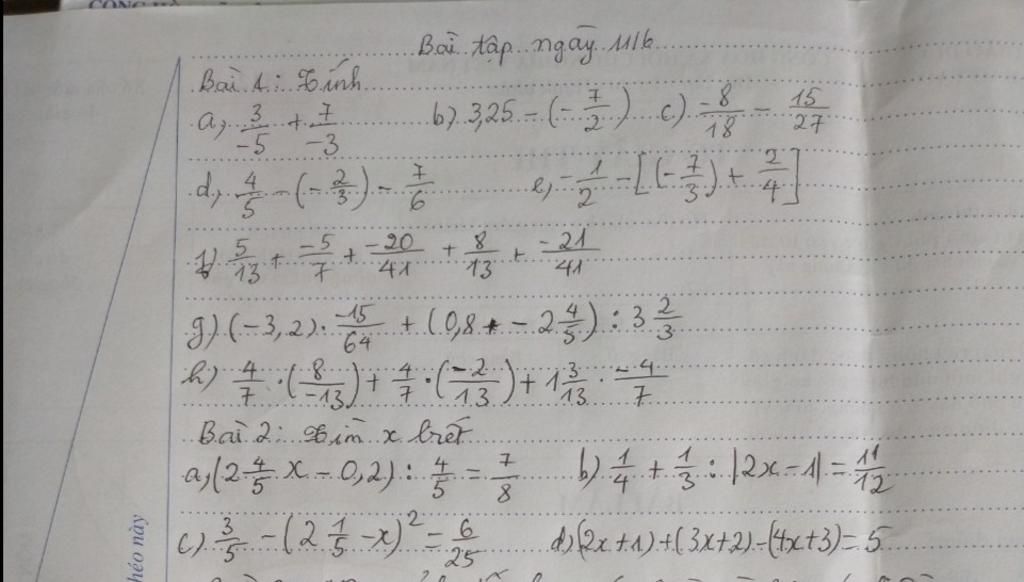 Bài tập ngày 11/6
Bài 1: Tính
a, 3/-5 + 7/-3 b) 3,25 - (-7/2) c) -8/18 - 15/27
d, 4/5 - (-2/3) - 7/6 e, -1/2 - [(-7/3) + 2/4]
f) 5/13 + -5/7 + -20/41 + 8/13 + -21/41
g) (-3,2) · -15/64 + (0,8 - 2 4/5) : 3 2/3
h) 4/7 · (8/-13) + 4/7 · (-2/13) + 1 3/13 · -4/7
Bài 2: Tìm x biết
a, (2 4/5 x - 0,2) : 4/5 = 7/8 b) 1/4 + 1/3 : |2x - 1| = 11/12
c) 3/5 - (2 1/5 - x)² = 6/25 d) (2x+1) + (3x+2) - (4x+3) = 5
héo này